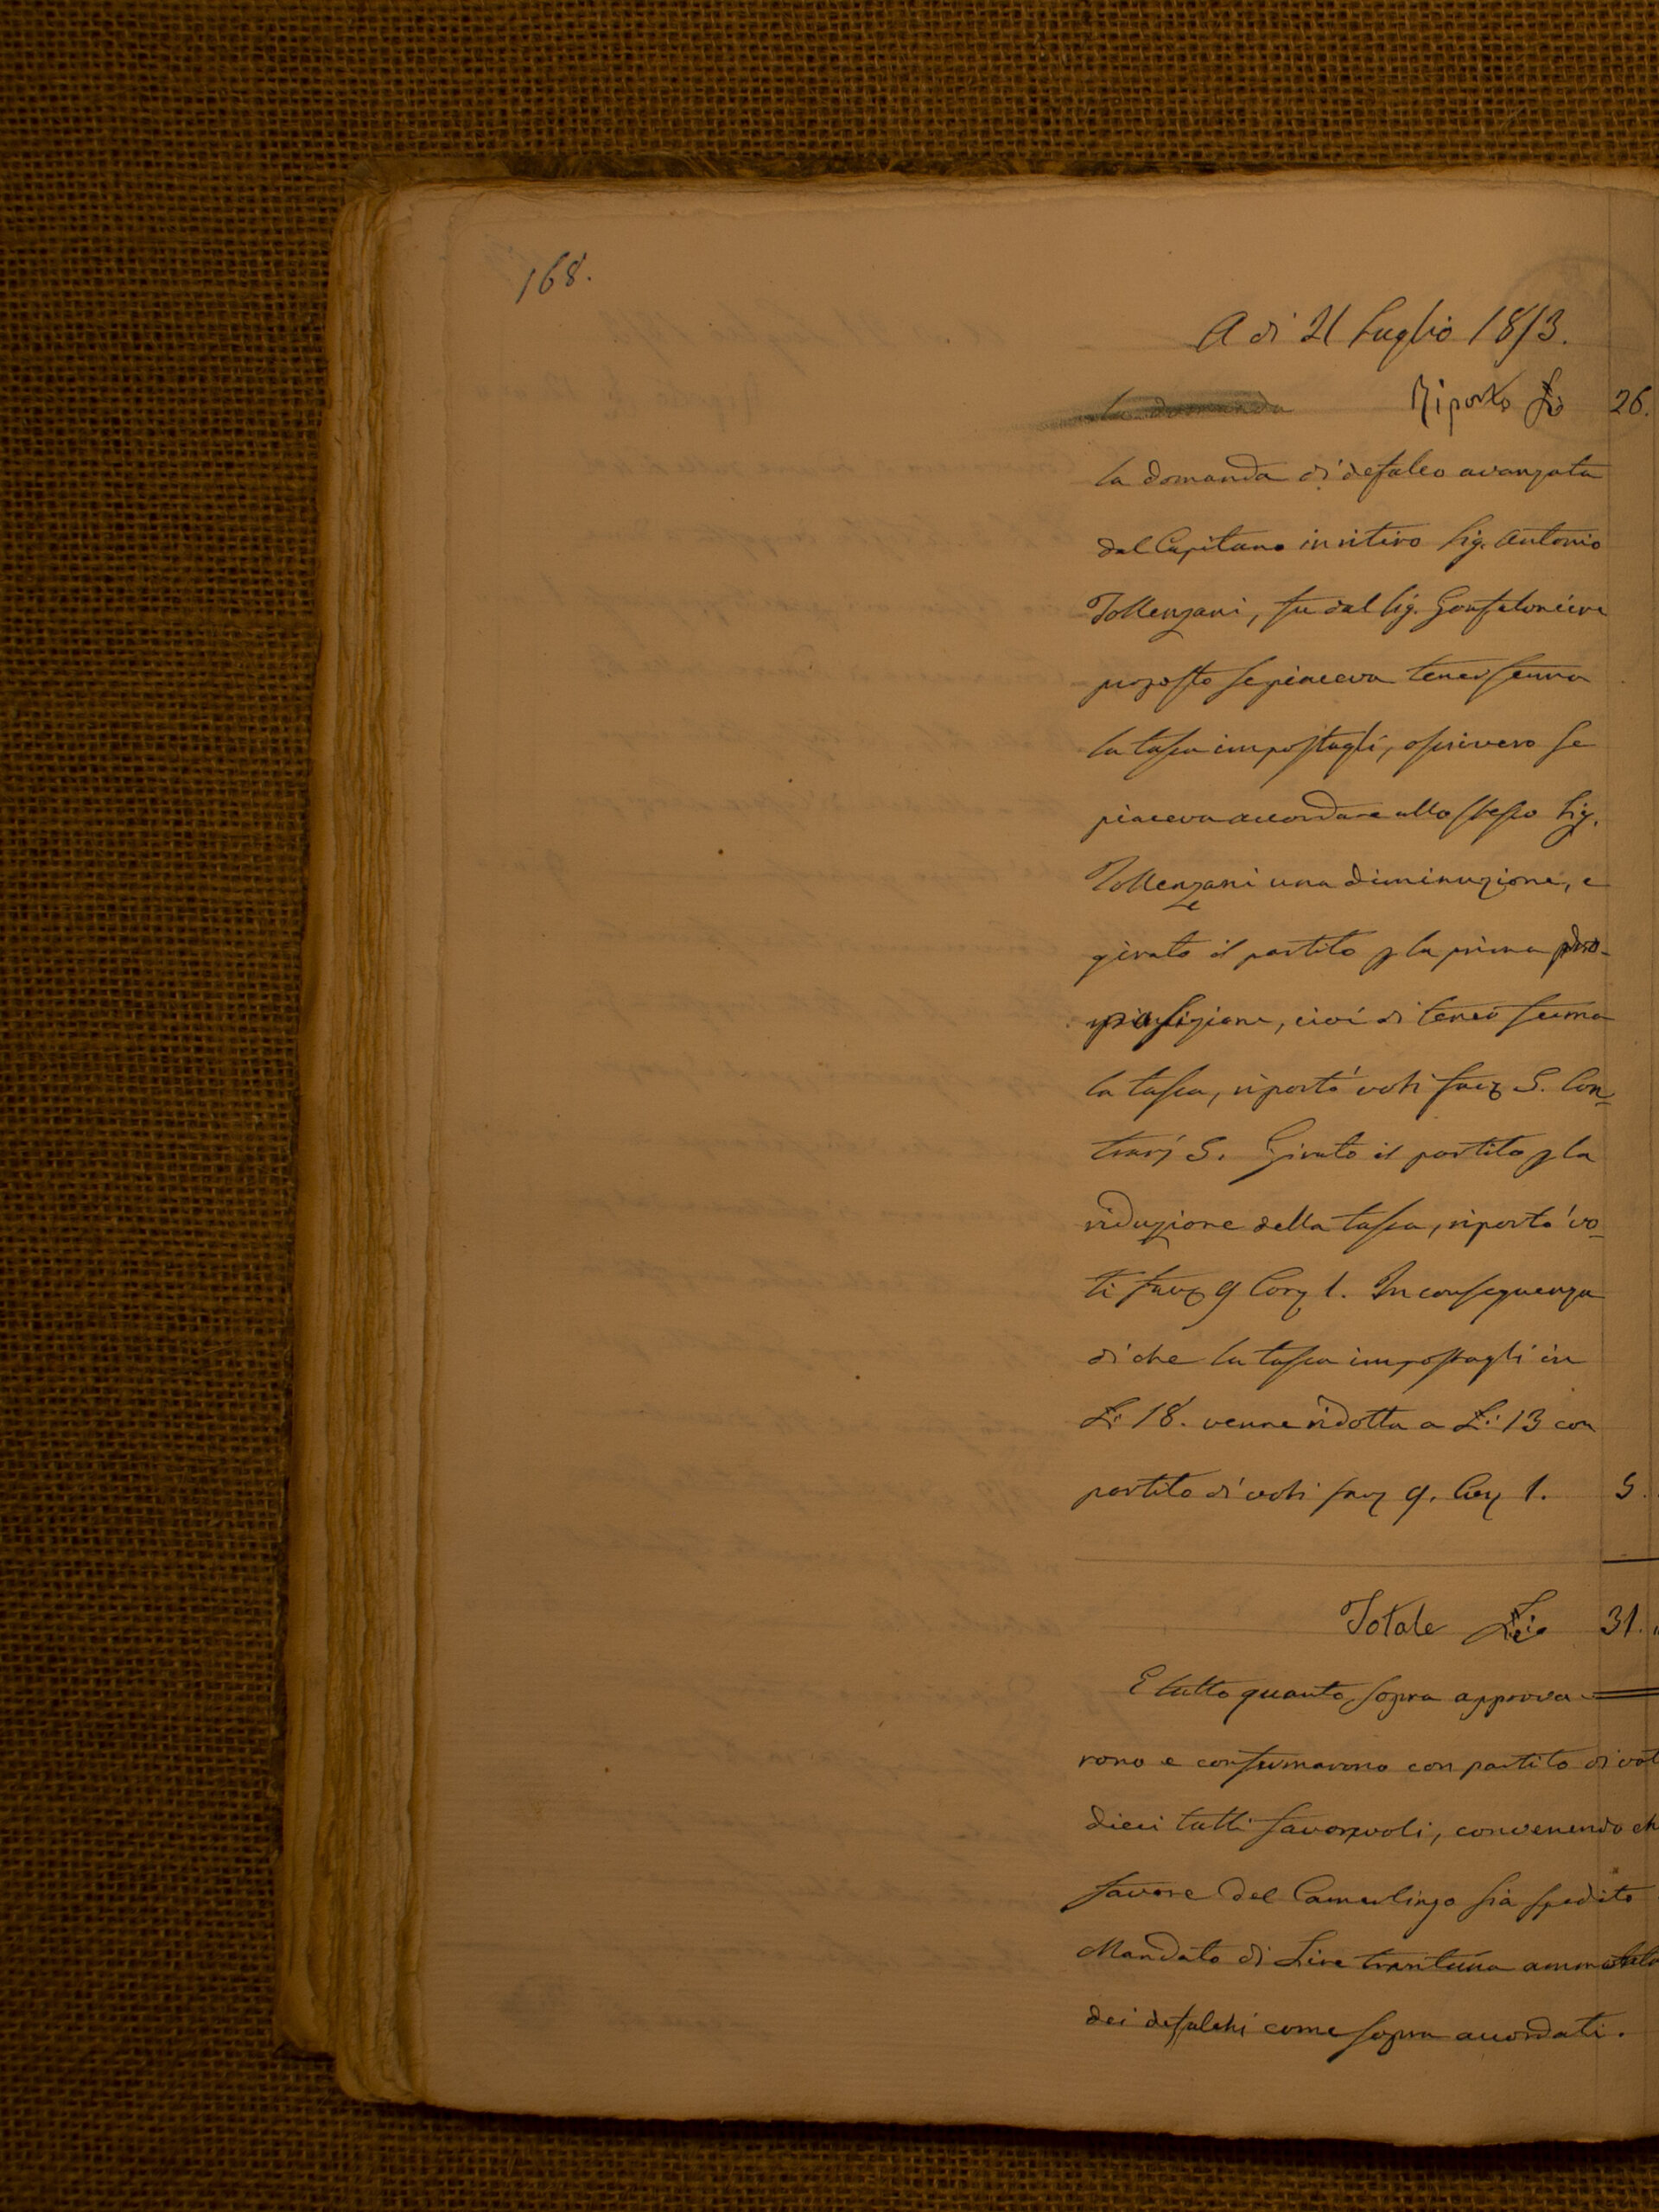 168.
A di 21 Luglio 1853.
la domanda
Riporto Lie 26.
la domanda di defalco avanzata
dal Capitano in ritiro Sig. Antonio
Tollenzani, fu dal Sig. Gonfaloniere
proposto se piaceva tener ferma
la tassa impostagli, o sivvero se
piaceva accordare allo stesso Sig.
Tollenzani una diminuzione, e
girato il partito p la prima pro-
posizione, cioè di tener ferma
la tassa, riportò voti favi 5. Con-
trarj 5. Girato il partito p la
riduzione della tassa, riportò vo-
ti favi 9 Conj 1. In conseguenza
di che la tassa impostagli in
Lie 18. venne ridotta a Lie 13 con
partito di voti favi 9. Conj 1. 5.
Totale Lie 31.
E tutto quanto sopra approva-
rono e confermarono con partito di vot
dieci tutti favorevoli, convenendo ch
favore del Camerlingo sia spedito
Mandato di Lire trentuna
dei defalchi come sopra accordati.